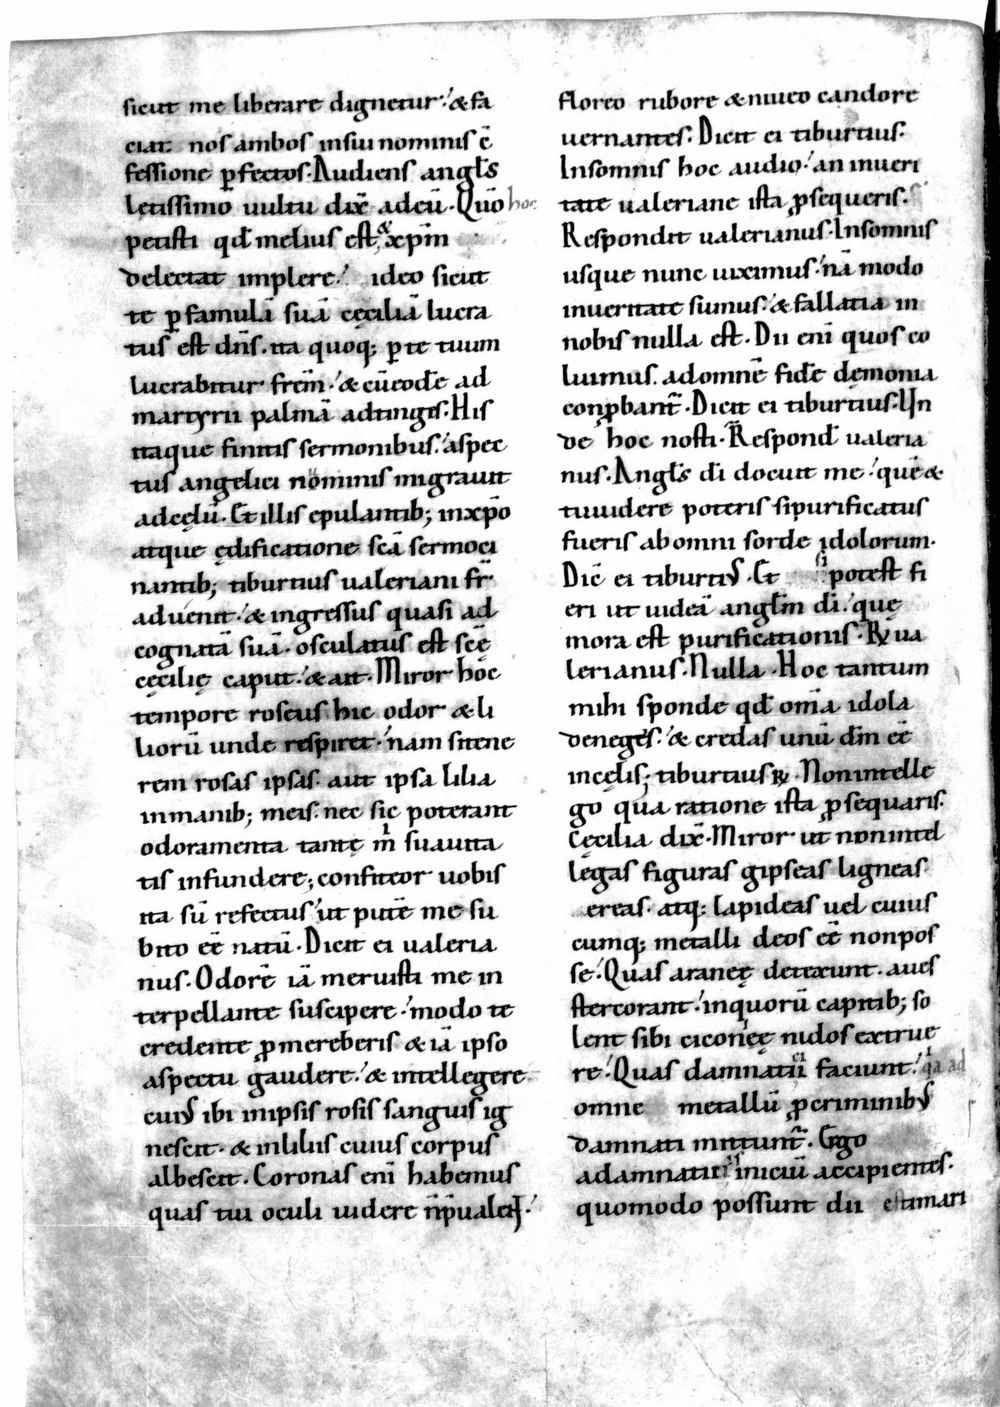 sicut me liberare dignetur. & fa
ciat nos ambos insui nominis c̄
fessione ꝑfectos. Audiens angl̄s
letissimo uultu dix̄ adeū. Qm̄o hoc
petisti qđ melius est, & xp̄m
delectat implere. ideo sicut
te ꝑ famulā suā cęciliā lucra
tus est dn̄s. ita quoq; ꝑ te tuum
lucrabitur frēm. & cū eodē ad
martyrii palmā adtinges. His
itaque finitis sermonibus. aspec
tus angelici nominis migrauit
adcęlū. Et illis epulantib; inxp̄o
atque ędificatione scā sermoci
nantib; tiburtius ualeriani fr̄
aduenit. & ingressus quasi ad
cognatā suā. osculatus est scę̄
cęcilię caput. & ait. Miror hoc
tempore roseus hic odor & li
liorū unde respiret. nam sitene
rem rosas ipsas. aut ipsa lilia
inmanib; meis. nec sic poterant
odoramenta tantę m̄ suauita
tis infundere; confiteor uobis
ita sū refectus ut putē me su
bito eē natū. Dicit ei ualeria
nus. Odorē iā meruisti me in
terpellante suscipere. modo te
credente ꝓmereberis & iā ipso
aspectu gaudere. & intellegere
cuiꝰ ibi inipsis rosis sanguis ig
nescit. & inliliis cuius corpus
albescit. Coronas enī habemus
quas tui oculi uidere n̄ p̄ualent.
floreo rubore & niueo candore
uernantes. Dicit ei tiburtius.
Insomnis hoc audio. an inueri
tate ualeriane ista ꝓsequeris.
Respondit ualerianus. Insomnis
usque nunc uiximus. nā modo
inueritate sumus. & fallatia in
nobis nulla est. Dii enī quos co
luimus. adomnē fidē dęmonia
conꝓbant̄. Dicit ei tiburtius. Un
de hoc nosti. Respond̄ ualeria
nus. Angl̄s dī docuit me. quē &
tuuidere poteris sipurificatus
fueris abomni sorde idolorum.
Dic̄ ei tiburtiꝰ. Et si potest fi
eri ut uideā angl̄m dī. quę
mora est purificationis. ℟ ua
lerianus. Nulla. Hoc tantum
mihi sponde qđ omā idola
deneges. & credas unū dm̄ eē
incęlis; tiburtius ℟. Nonintelle
go qua ratione ista ꝓsequaris.
Cęcilia dix̄. Miror ut nonintel
legas figuras gipseas ligneas
ereas atq; lapideas uel cuius
cumq; metalli deos eē nonpos
se. Quas araneę detexunt. aues
stercorant. inquorū capitib; so
lent sibi ciconięę nidos extrue
re. Quas damnatii faciunt. qa ad
omne metallū ꝓ criminibꝰ
damnati mittunt̄. Ergo
adamnatis iniciū accipientes.
quomodo possunt dii estimari